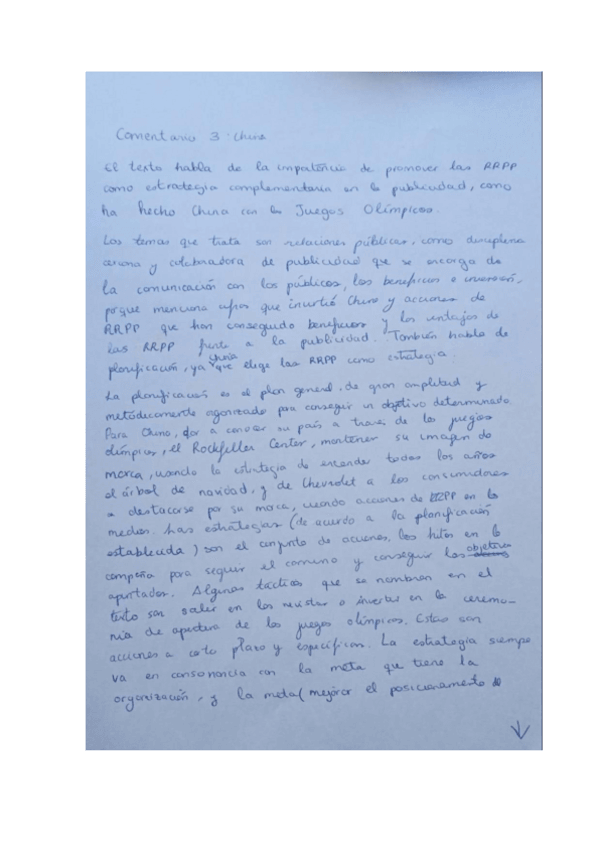 Comentario 3: China
El texto habla de la importancia de promover las RRPP
como estrategia complementaria en la publicidad, como
ha hecho China con los Juegos Olímpicos.
Los temas que trata son relaciones públicas, como disciplina
cercana y colaboradora de publicidad que se encarga de
la comunicación con los públicos, los beneficios e inversión,
porque menciona cifras que invirtió China y acciones de
RRPP que han conseguido beneficios y los ventajas de
las RRPP frente a la publicidad. También habla de
planificación, ya que China elige las RRPP como estrategia.
La planificación es el plan general, de gran amplitud y
metódicamente organizado para conseguir un objetivo determinado.
Para China, dar a conocer su país a través de los juegos
olímpicos, el Rockfeller Center, mantener su imagen de
marca, usando la estrategia de encender todos los años
el árbol de navidad, y de Chevrolet a los consumidores
a destacarse por su marca, creando acciones de RRPP en los
medios. Las estrategias (de acuerdo a la planificación
establecida) son el conjunto de acciones, los hitos en la
campaña para seguir el camino y conseguir los objetivos
apuntados. Algunas tácticas que se nombran en el
texto son salir en las revistas o invertir en la ceremo-
nia de apertura de los juegos olímpicos. Estas son
acciones a corto plazo y específicas. La estrategia siempre
va en consonancia con la meta que tiene la
organización, y la meta (mejorar el posicionamento